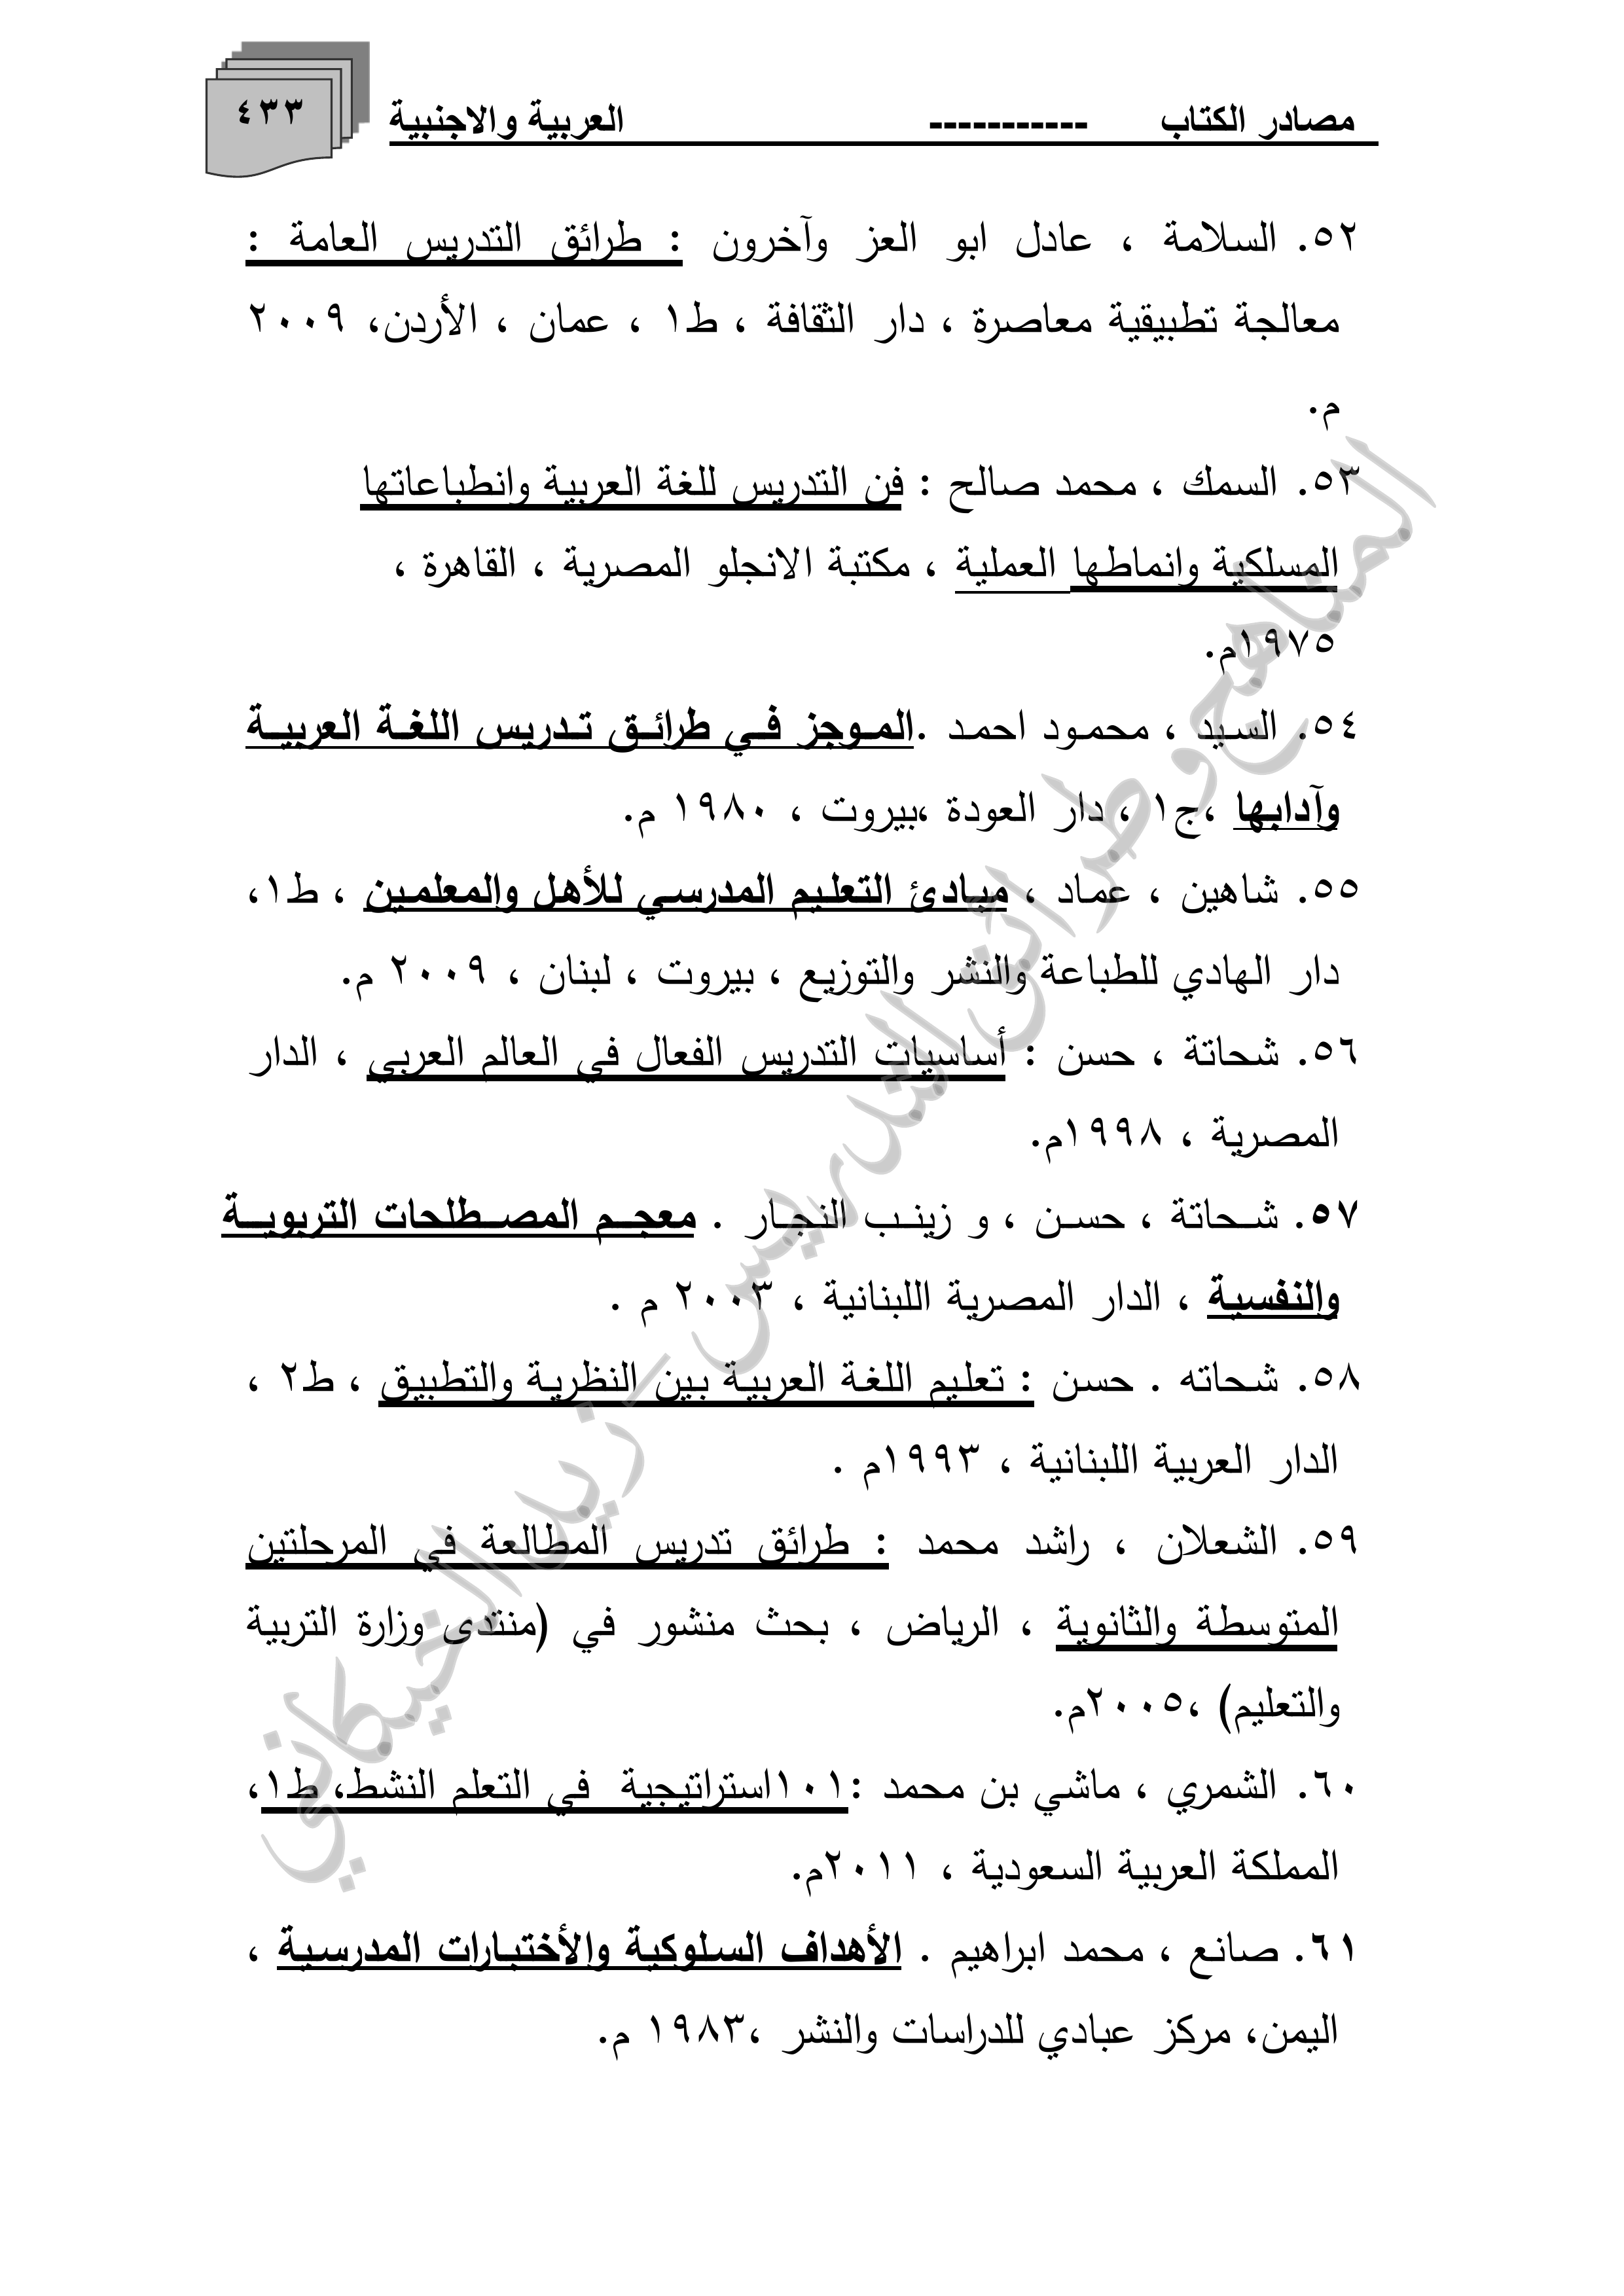 مصادر الكتاب ----------- العربية والاجنبية ٤٣٣
٥٢. السلامة ، عادل ابو العز وآخرون : طرائق التدريس العامة :
معالجة تطبيقية معاصرة ، دار الثقافة ، ط١ ، عمان ، الأردن، ٢٠٠٩
م.
٥٣. السمك ، محمد صالح : فن التدريس للغة العربية وانطباعاتها
المسلكية وانماطها العملية ، مكتبة الانجلو المصرية ، القاهرة ،
١٩٧٥م.
٥٤. السيد ، محمود احمد .الموجز في طرائق تدريس اللغة العربية
وآدابها ،ج١ ، دار العودة ،بيروت ، ١٩٨٠ م.
٥٥. شاهين ، عماد ، مبادئ التعليم المدرسي للأهل والمعلمين ، ط١،
دار الهادي للطباعة والنشر والتوزيع ، بيروت ، لبنان ، ٢٠٠٩ م.
٥٦. شحاتة ، حسن : أساسيات التدريس الفعال في العالم العربي ، الدار
المصرية ، ١٩٩٨م.
٥٧. شحاتة ، حسن ، و زينب النجار . معجم المصطلحات التربوية
والنفسية ، الدار المصرية اللبنانية ، ٢٠٠٣ م .
٥٨. شحاته . حسن : تعليم اللغة العربية بين النظرية والتطبيق ، ط٢ ،
الدار العربية اللبنانية ، ١٩٩٣م .
٥٩. الشعلان ، راشد محمد : طرائق تدريس المطالعة في المرحلتين
المتوسطة والثانوية ، الرياض ، بحث منشور في (منتدى وزارة التربية
والتعليم) ،٢٠٠٥م.
٦٠. الشمري ، ماشي بن محمد :١٠١استراتيجية في التعلم النشط، ط١،
المملكة العربية السعودية ، ٢٠١١م.
٦١. صانع ، محمد ابراهيم . الأهداف السلوكية والأختبارات المدرسية ،
اليمن، مركز عبادي للدراسات والنشر ،١٩٨٣ م.
المناهج وطرائق التدريس - زيد الخيكاني